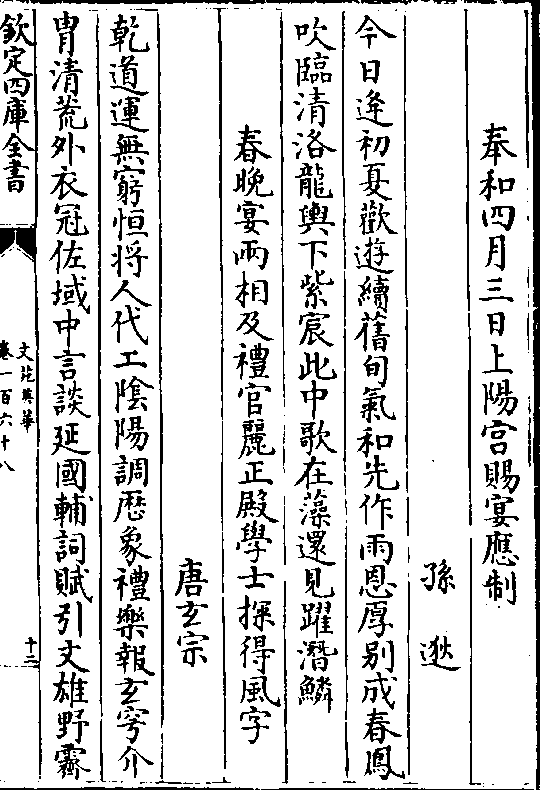 奉和四月三日上陽宮賜宴應制
孫逖
今日逢初夏歡遊續舊旬氣和先作雨恩厚别成春鳳
吹臨清洛龍輿下紫宸此中歌在藻還見躍潛鱗
春晚宴兩相及禮官麗正殿學士探得風字
唐玄宗
乾道運無窮恒将人代工陰陽調歴象禮樂報玄穹介
胄清荒外衣冠佐域中言談延國輔詞賦引文雄野霽
欽定四庫全書
文苑英華
卷一百六十八
十二